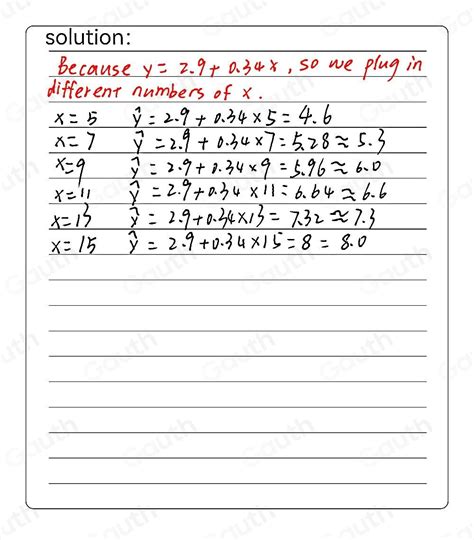 solution:
Because y = 2.9 + 0.34x, so we plug in
different numbers of x.
x = 5 ŷ = 2.9 + 0.34 × 5 = 4.6
x = 7 ŷ = 2.9 + 0.34 × 7 = 5.28 ≈ 5.3
x = 9 ŷ = 2.9 + 0.34 × 9 = 5.96 ≈ 6.0
x = 11 ŷ = 2.9 + 0.34 × 11 = 6.64 ≈ 6.6
x = 13 ŷ = 2.9 + 0.34 × 13 = 7.32 ≈ 7.3
x = 15 ŷ = 2.9 + 0.34 × 15 = 8 = 8.0